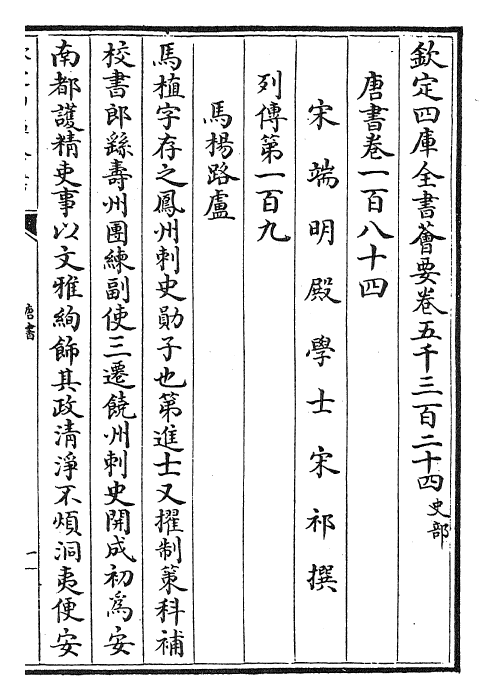 欽定四庫全書薈要卷五千三百二十四史部
唐書卷一百八十四
宋端明殿學士宋祁撰
列傳第一百九
馬楊路盧
馬植字存之鳳州刺史勛子也第進士又擢制策科補
校書郎繇壽州團練副使三遷饒州刺史開成初為安
南都護精吏事以文雅絢飾其政清淨不煩洞夷便安
唐書
一